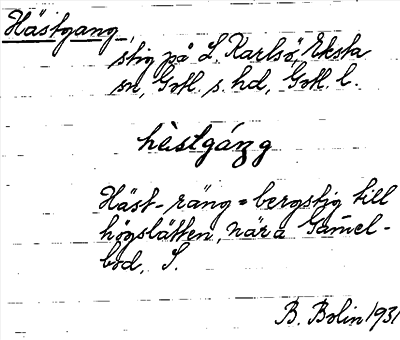 Hästgang,
stig på L. Karlsö, Eksta
sn, Gotl. s. hd, Gotl. l.
hèstgáŋg
Häst-räng = bergstig till
högslätten, nära Gamel-
bod, S.
B. Bolin 1931